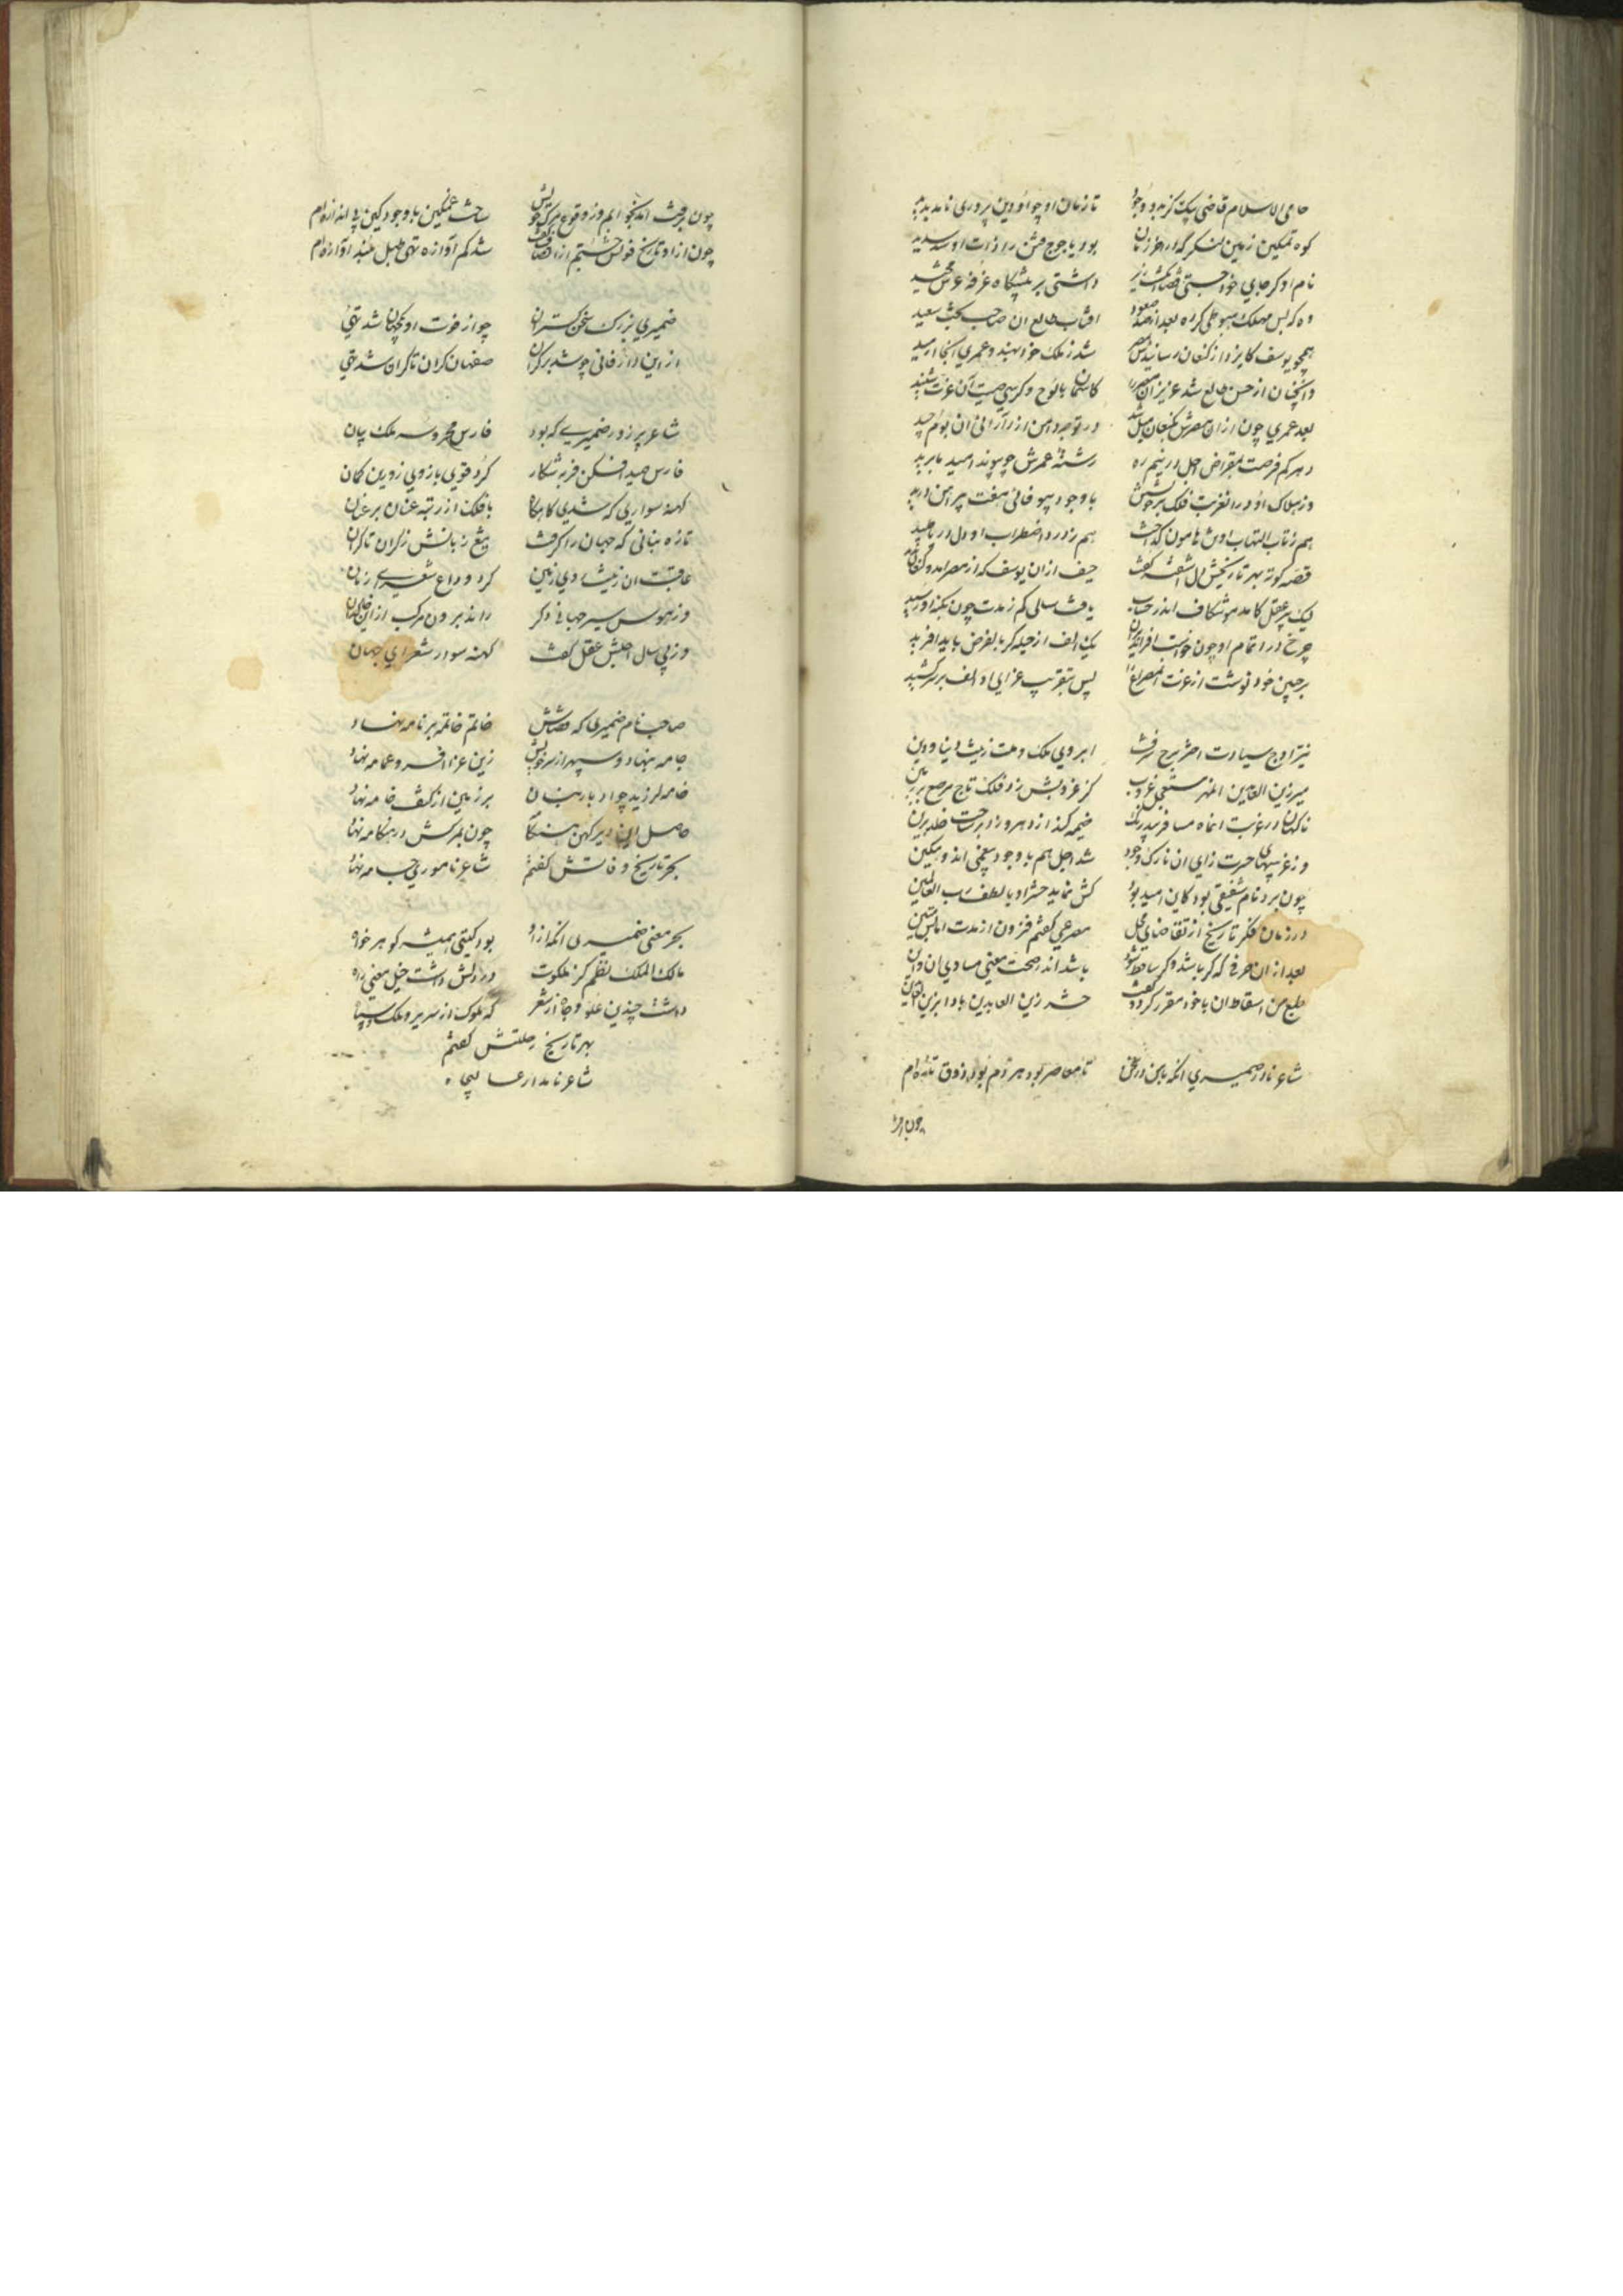 حامی الاسلام قاضی بیک کز بدو وجود تا زمان او چو او دین پروری نامد پدید
کوه تمکین زمین لنگر که در آخر زمان بود یاجوج فتن را ذات او سد سدید
نام او کر جای خود جستی داشتی بر پیشگاه غرفه عرش مجید
وه که بس مهلک هبوطی کرده بعد از صعود آفتاب طالع آن صاحب بخت سعید
همچو یوسف کایزد از کنعان رسانیدش بمصر شد ز ملک خود بهند و عمری آنجا آرمید
وآنچنان از حسن طالع شد عزیز آن مصر را کاسمان با لوح و کرسی صیت آن عزت شنید
بعد عمری چون از آن مصرش بکنعان میل شد در توجه دامن از آرائی آن بوم چید
دهر کم فرصت بمقراض اجل در نیم ره رشته عمرش چو پیوند امید ما برید
وز هلاک او در آن غربت فلک بر خویشتن با وجود بیوفائی هفت پیراهن درید
هم ز تاب التهاب او تن هامون گداخت هم ز درد اضطراب او دل دریا طپید
قصه کوته بهر تاریخش دل آشفته گفت حیف از آن یوسف که از مصر آمد و کنعان ندید
لیک پیر عقل کامد موشکاف اندر حساب یافت سالی کم ز مدت چون بکنه او رسید
چرخ در اتمام او چون خواست افزاید بر آن یک الف از حیله کر بالفرض باید آفرید
بر جبین خود نوشت از عزت این مصراع را پس بتقریب عزای او الف بر سر کشید
نیر اوج سیادت اختر برج شرف آبروی ملک و ملت زینت دنیا و دین
میر زین العابدین آن مهر مستعجل غروب کز غروبش زد فلک تاج مرصع بر زمین
ناگهان در غربت آن ماه مسافر بیدرنگ خیمه کند از دهر و زد بر ساحت خلد برین
وز غریبیهای حسرت زای آن نازک وجود شد اجل هم با وجود بیغمی اندوهگین
چون برد نام شفیقی بود کاین امید بود کش نماید حشر او با لطف رب العالمین
در زمان فکر تاریخ از تقاضای محل مصرعی گفتم فزون از مدت اما بس متین
بعد از آن حرفی که گر باشد وگر ساقط شود باشد اندر صحت معنی مساوی آن و این
طبع من اسقاط آن با خود مقرر کرد و گفت حشر زین العابدین بادا بزین العابدین
شاعر نادر ضمیری آنکه با من در سخن تا معاصر بود هر دم بود ذوق تازه‌ام
چون بر رخت
چون برفت اما نکو ابم ز وقوع مرگ خویش ساخت غمگین با وجود کین بی اندازه‌ام
چون از او تاریخ فوتش جستم از انصاف گفت شد کم آوازه تهی طبل بلند آوازه‌ام
ضمیری بزرگ سخن گستران چو از فوت او نکته‌دان شد تهی
از این دار فانی چو شد بر کران صفهان کران تا کران شد تهی
شاعر پر زور ضمیری که بود فارس محروسه ملک بیان
فارس صید افکن فربه شکار کرد قوی بازوی زوبین کمان
کهنه سواری که شدی گاه گاه با فلک از رتبه عنان بر عنان
تازه بنانی که جهان را گرفت تیغ زبانش ز کران تا کران
عاقبت آن زینت روی زمین کرد وداع شعرای زمان
وز هوس سیر جهانی دگر راند برون مرکب از این خاکدان
وز پی سال اجلش عقل گفت کهنه سوار شعرای جهان
صاحب نام ضمیری که قضاش خاتم خاتمه بر نامه نهاد
جامه بنهاد و سپهر از سر خویش زین عزا افسر و عمامه نهاد
خامه لرزید چو او بار بنان بر زمین از کف خامه نهاد
حاصل این دیر کهن هنگامه چون بمرگش در هنگامه نهاد
بحر تاریخ وفاتش گفتم شاعر ناموری جامه نهاد
بحر معنی ضمیری آنکه از او بود گیتی همیشه گوهر خواه
مالک الملک نظم کز ملکوت در دلش داشت خیل معنی راه
داشت چندین علو و جاه از شعر که ملوک از سریر و ملک و سپاه
بهر تاریخ رحلتش گفتم
شاعر نامدار عالیجاه